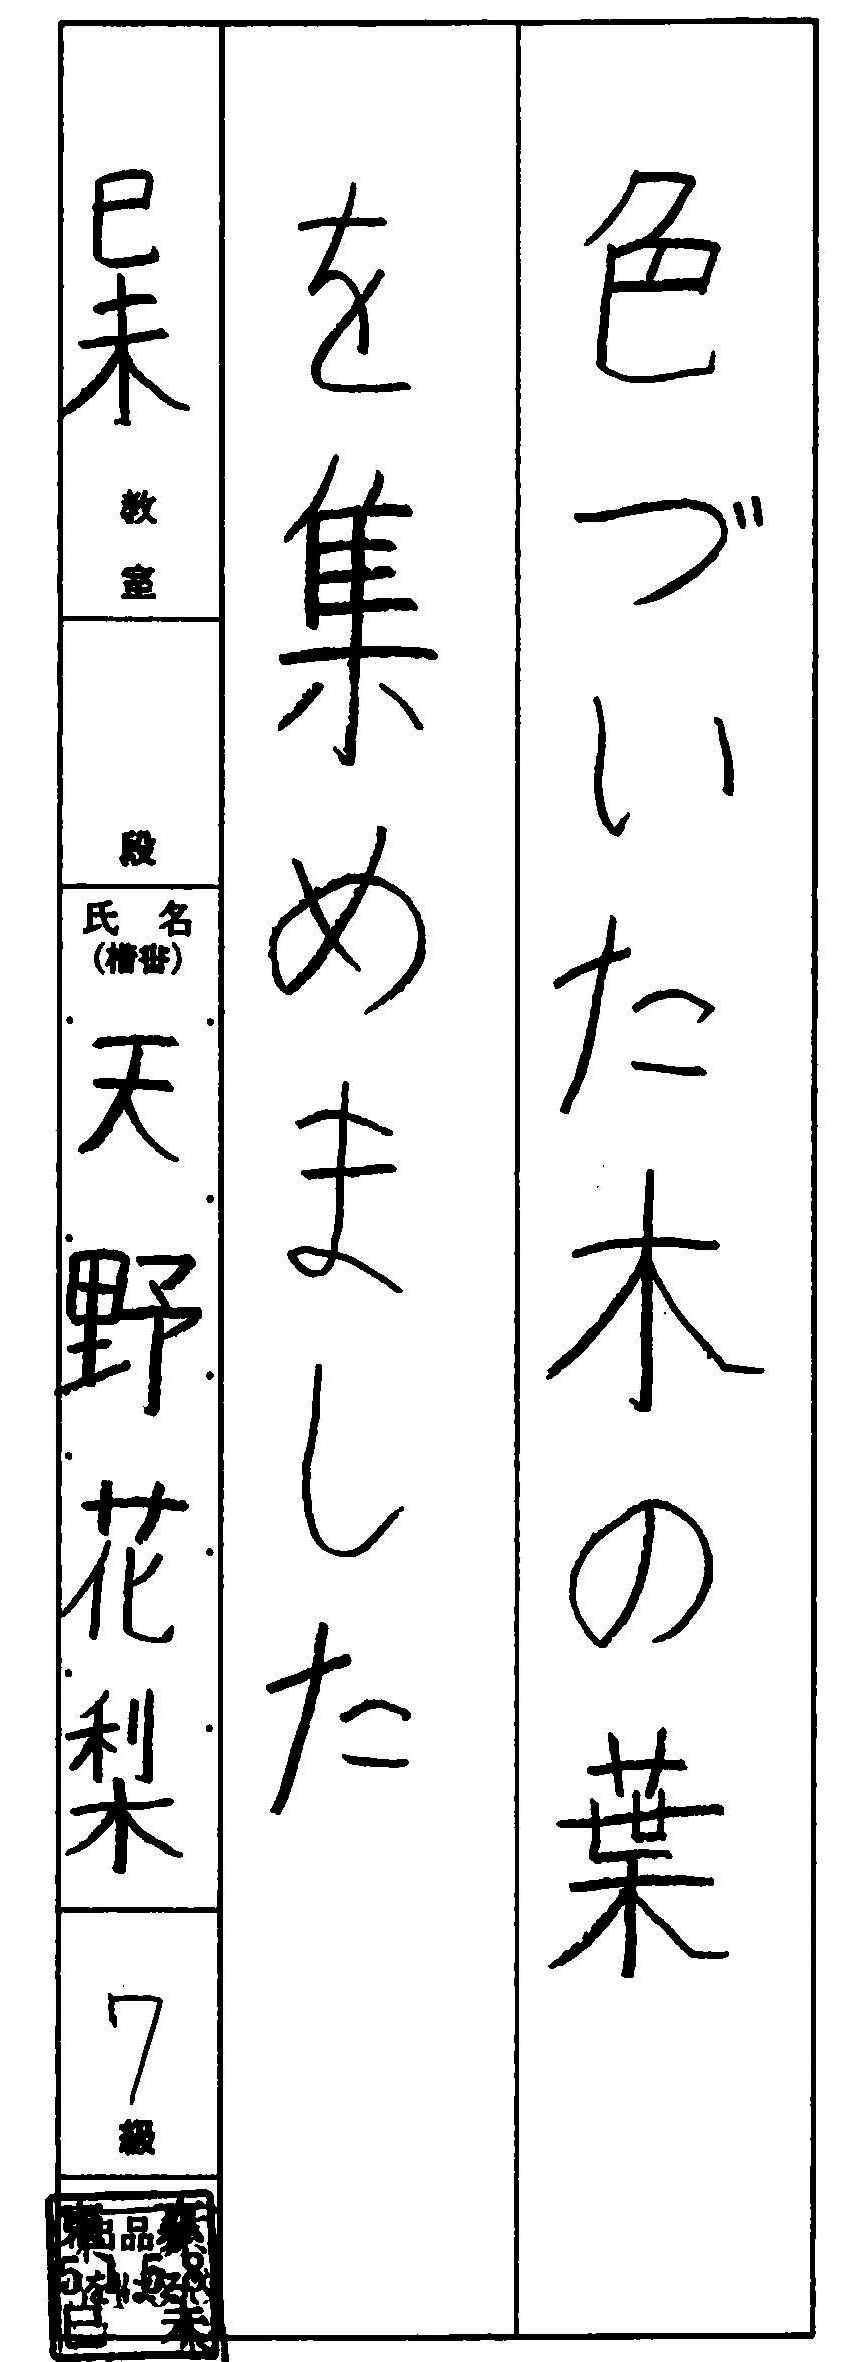 色づいた木の葉
を集めました
巳未教室
段
氏名
(楷書)
天野花梨
7級